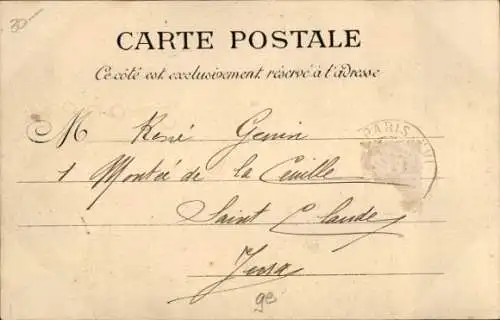 30
CARTE POSTALE
Ce côté est exclusivement réservé à l'adresse
M René Genin
PARIS
1 Montée de la Cueille
Saint Claude
Jura
ge